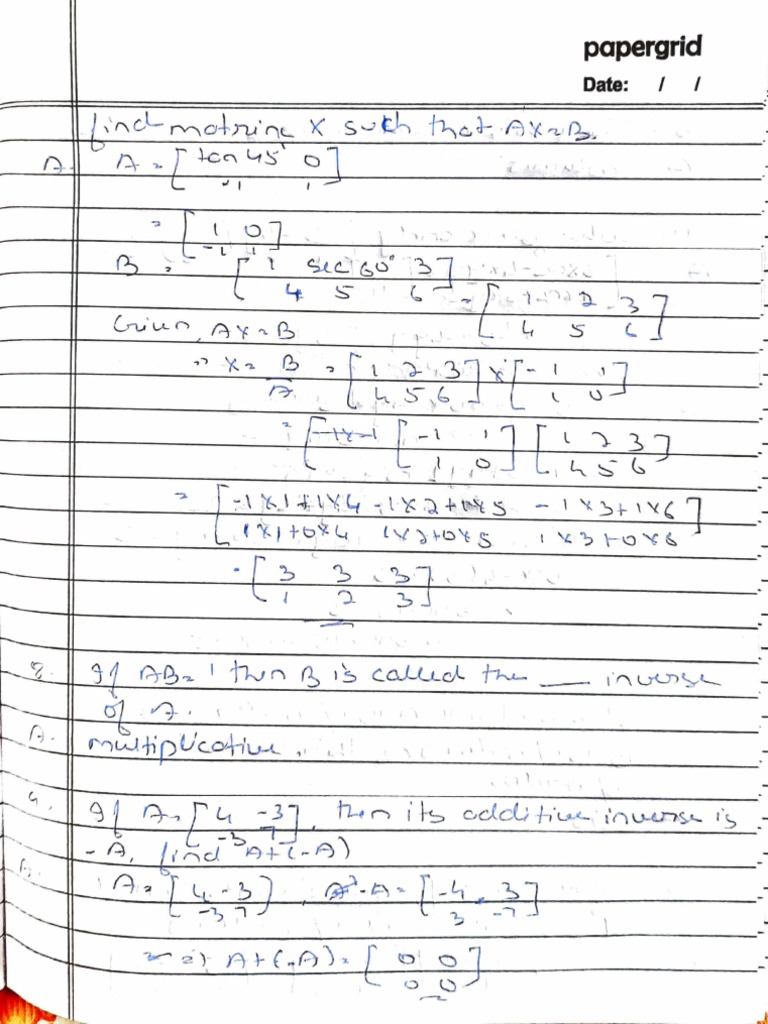 papergrid
Date: / /
find matrix X such that AX=B.
A. A = [tan 45° 0]
[-1 1]
= [1 0]
[-1 1]
B = [1 sec 60° 3] = [1 2 3]
[4 5 6] [4 5 6]
Given, AX=B
⇒ X = B/A = [1 2 3] x [-1 1]
[4 5 6] [1 0]
= [-1 1] [1 2 3]
[1 0] [4 5 6]
= [-1x1+1x4 -1x2+1x5 -1x3+1x6]
[1x1+0x4 1x2+0x5 1x3+0x6]
= [3 3 3]
[1 2 3]
8. If AB=1 then B is called the ___ inverse
of A.
A. multiplicative.
9. If A=[4 -3], then its additive inverse is
[-3 7]
-A, find A+(-A)
A. A=[4 -3], -A=[-4 3]
[-3 7] [3 -7]
⇒ A+(-A)=[0 0]
[0 0]